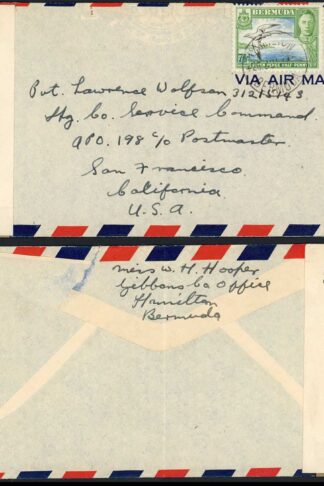 BERMUDA
VIA AIR MA
Pvt. Lawrence Wolfson 31215143
Hq. Co. Service Command
APO. 198 c/o Postmaster
San Francisco
California
U. S. A.
Miss W. H. Hooper
Gibbons Co Office
Hamilton
Bermuda